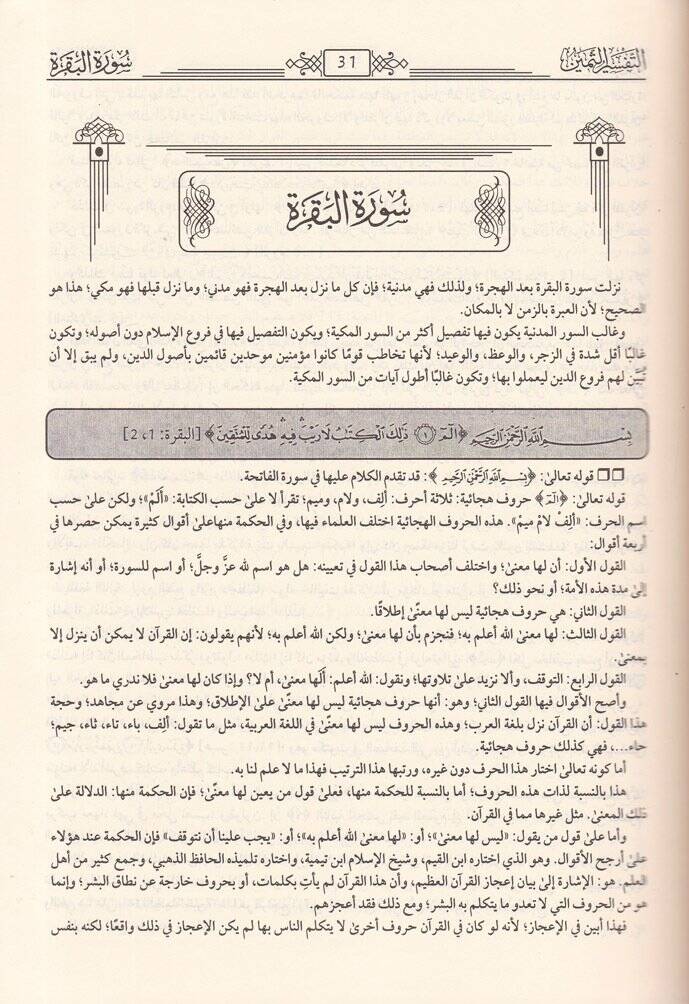 التفسير الثمين
31
سورة البقرة
سورة البقرة
نزلت سورة البقرة بعد الهجرة؛ ولذلك فهي مدنية؛ فإن كل ما نزل بعد الهجرة فهو مدني؛ وما نزل قبلها فهو مكي؛ هذا هو
الصحيح؛ لأن العبرة بالزمن لا بالمكان.
وغالب السور المدنية يكون فيها تفصيل أكثر من السور المكية؛ ويكون التفصيل فيها في فروع الإسلام دون أصوله؛ وتكون
غالبًا أقل شدة في الزجر، والوعظ، والوعيد؛ لأنها تخاطب قومًا كانوا مؤمنين موحدين قائمين بأصول الدين، ولم يبق إلا أن
تُبيَّن لهم فروع الدين ليعملوا بها؛ وتكون غالبًا أطول آيات من السور المكية.
بِسْمِ اللَّهِ الرَّحْمَٰنِ الرَّحِيمِ ﴿الٓمٓ ﴿١﴾ ذَٰلِكَ الْكِتَابُ لَا رَيْبَ فِيهِ هُدًى لِّلْمُتَّقِينَ﴾ [البقرة: 1، 2]
❒❒ قوله تعالى: ﴿بِسْمِ اللَّهِ الرَّحْمَٰنِ الرَّحِيمِ﴾: قد تقدم الكلام عليها في سورة الفاتحة.
قوله تعالى: ﴿الٓمٓ﴾ حروف هجائية: ثلاثة أحرف: ألِف، ولام، وميم؛ تقرأ لا على حسب الكتابة: «ألَمْ»؛ ولكن على حسب
اسم الحرف: «ألِفْ لامْ ميمْ». هذه الحروف الهجائية اختلف العلماء فيها، وفي الحكمة منهاعلى أقوال كثيرة يمكن حصرها في
أربعة أقوال:
القول الأول: أن لها معنى؛ واختلف أصحاب هذا القول في تعيينه: هل هو اسم لله عزَّ وجلَّ؛ أو اسم للسورة؛ أو أنه إشارة
إلى مدة هذه الأمة؛ أو نحو ذلك؟
القول الثاني: هي حروف هجائية ليس لها معنًى إطلاقًا.
القول الثالث: لها معنى الله أعلم به؛ فنجزم بأن لها معنى؛ ولكن الله أعلم به؛ لأنهم يقولون: إن القرآن لا يمكن أن ينزل إلا
بمعنى.
القول الرابع: التوقف، وألا نزيد على تلاوتها؛ ونقول: الله أعلم: أَلَها معنى، أم لا؟ وإذا كان لها معنى فلا ندري ما هو.
وأصح الأقوال فيها القول الثاني؛ وهو: أنها حروف هجائية ليس لها معنًى على الإطلاق؛ وهذا مروي عن مجاهد؛ وحجة
هذا القول: أن القرآن نزل بلغة العرب؛ وهذه الحروف ليس لها معنًى في اللغة العربية، مثل ما تقول: ألِف، باء، تاء، ثاء، جيم؛
حاء...، فهي كذلك حروف هجائية.
أما كونه تعالى اختار هذا الحرف دون غيره، ورتبها هذا الترتيب فهذا ما لا علم لنا به.
هذا بالنسبة لذات هذه الحروف؛ أما بالنسبة للحكمة منها، فعلى قول من يعين لها معنى؛ فإن الحكمة منها: الدلالة على
ذلك المعنى. مثل غيرها مما في القرآن.
وأما على قول من يقول: «ليس لها معنى»؛ أو: «لها معنى الله أعلم به»؛ أو: «يجب علينا أن نتوقف» فإن الحكمة عند هؤلاء
على أرجح الأقوال. وهو الذي اختاره ابن القيم، وشيخ الإسلام ابن تيمية، واختاره تلميذه الحافظ الذهبي، وجمع كثير من أهل
العلم. هو: الإشارة إلى بيان إعجاز القرآن العظيم، وأن هذا القرآن لم يأتِ بكلمات، أو بحروف خارجة عن نطاق البشر؛ وإنما
هو من الحروف التي لا تعدو ما يتكلم به البشر؛ ومع ذلك فقد أعجزهم.
فهذا أبين في الإعجاز؛ لأنه لو كان في القرآن حروف أخرى لا يتكلم الناس بها لم يكن الإعجاز في ذلك واقعًا؛ لكنه بنفس